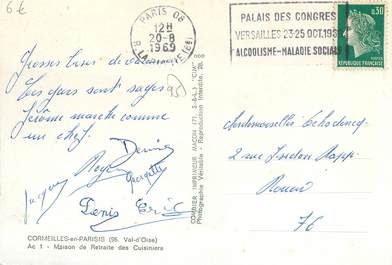 6€
PARIS 08
12H
20-8
1969
PALAIS DES CONGRES
VERSAILLES 23-25 OCT. 19
ALCOOLISME-MALADIE SOCIAL
0,30
Grosses bises de
Les gars sont sages
Jérôme marche comme
un chef.
95
Denise
Roger
Jacques
Georgette
Denis Eric
CORMEILLES-en-PARISIS (95. Val-d'Oise)
Ac 1 - Maison de Retraite des Cuisiniers
COMBIER IMPRIMEUR MACON (71. S.-&-L.) "CIM"
Photographie Véritable - Reproduction Interdite.
Mademoiselle
2 rue Rapp.
Rouen
76